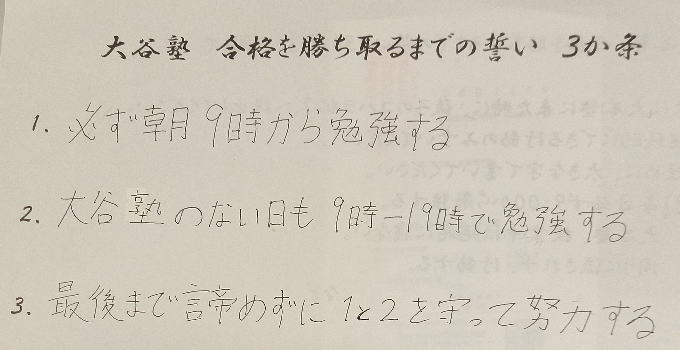 大谷塾 合格を勝ち取るまでの誓い 3か条
1. 必ず朝9時から勉強する
2. 大谷塾のない日も9時－19時で勉強する
3. 最後まで諦めずに1と2を守って努力する